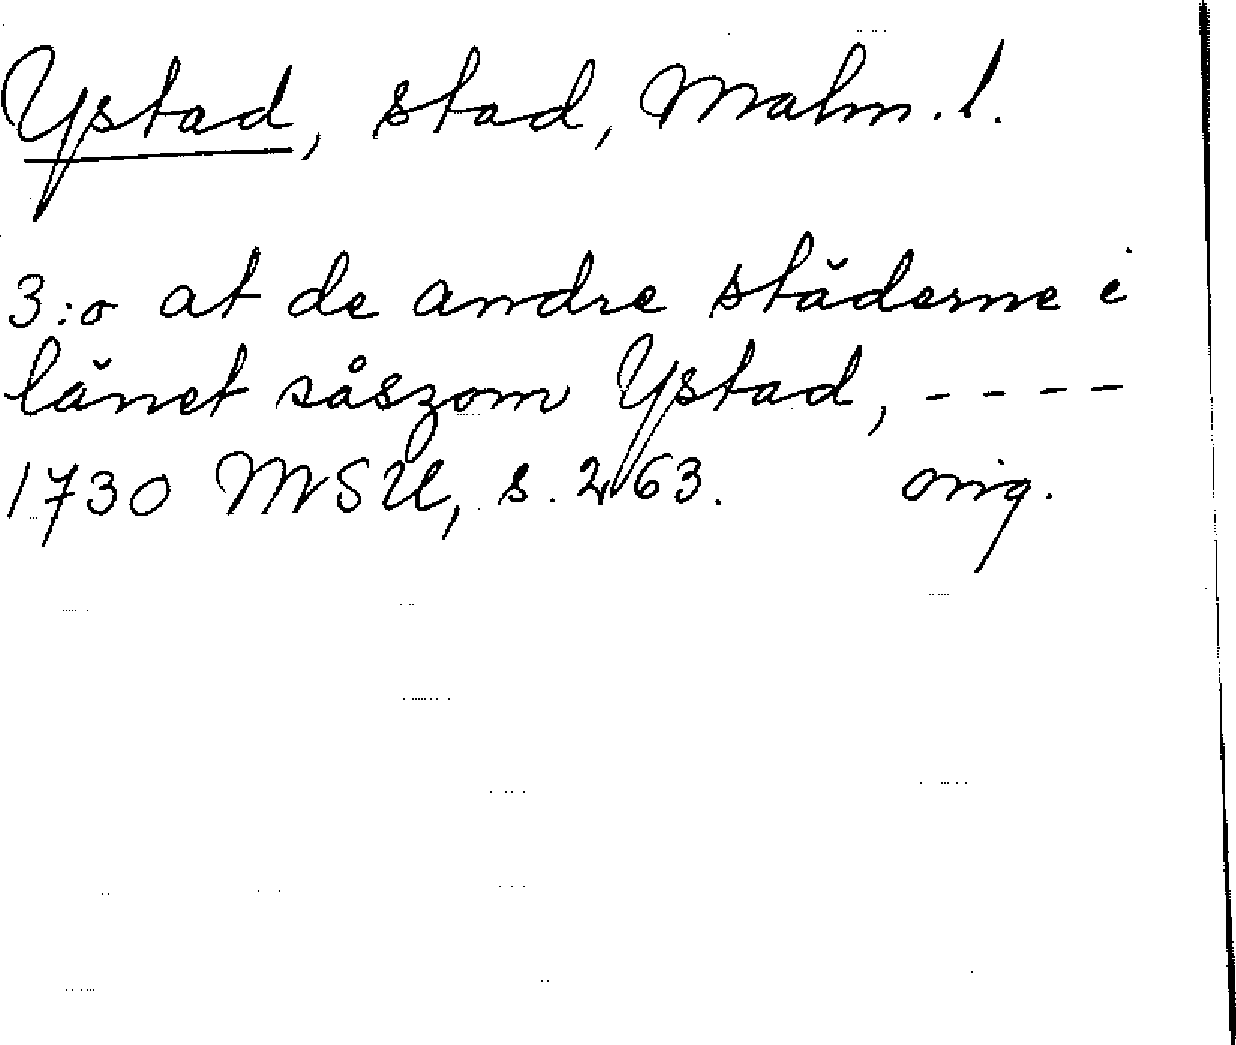 Ystad, stad, Malm. l.
3:o at de andre städerne i
länet såszom Ystad, - - - -
1730 MSU, s. 263. orig.